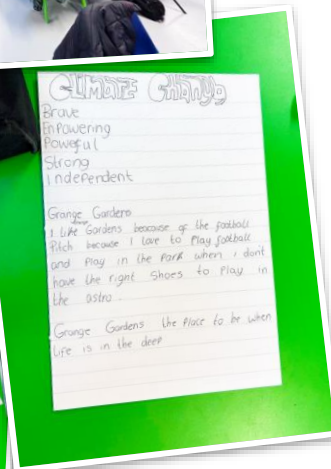 CLIMATE Change
Brave
Enpowering
Powerful
Strong
Independent
Grange Gardens
I like Grange Gardens beacause of the football
Pitch because I love to Play football
and Play in the Park when i don't
have the right Shoes to Play in
the astro.
Grange Gardens the Place to be when
life is in the deep